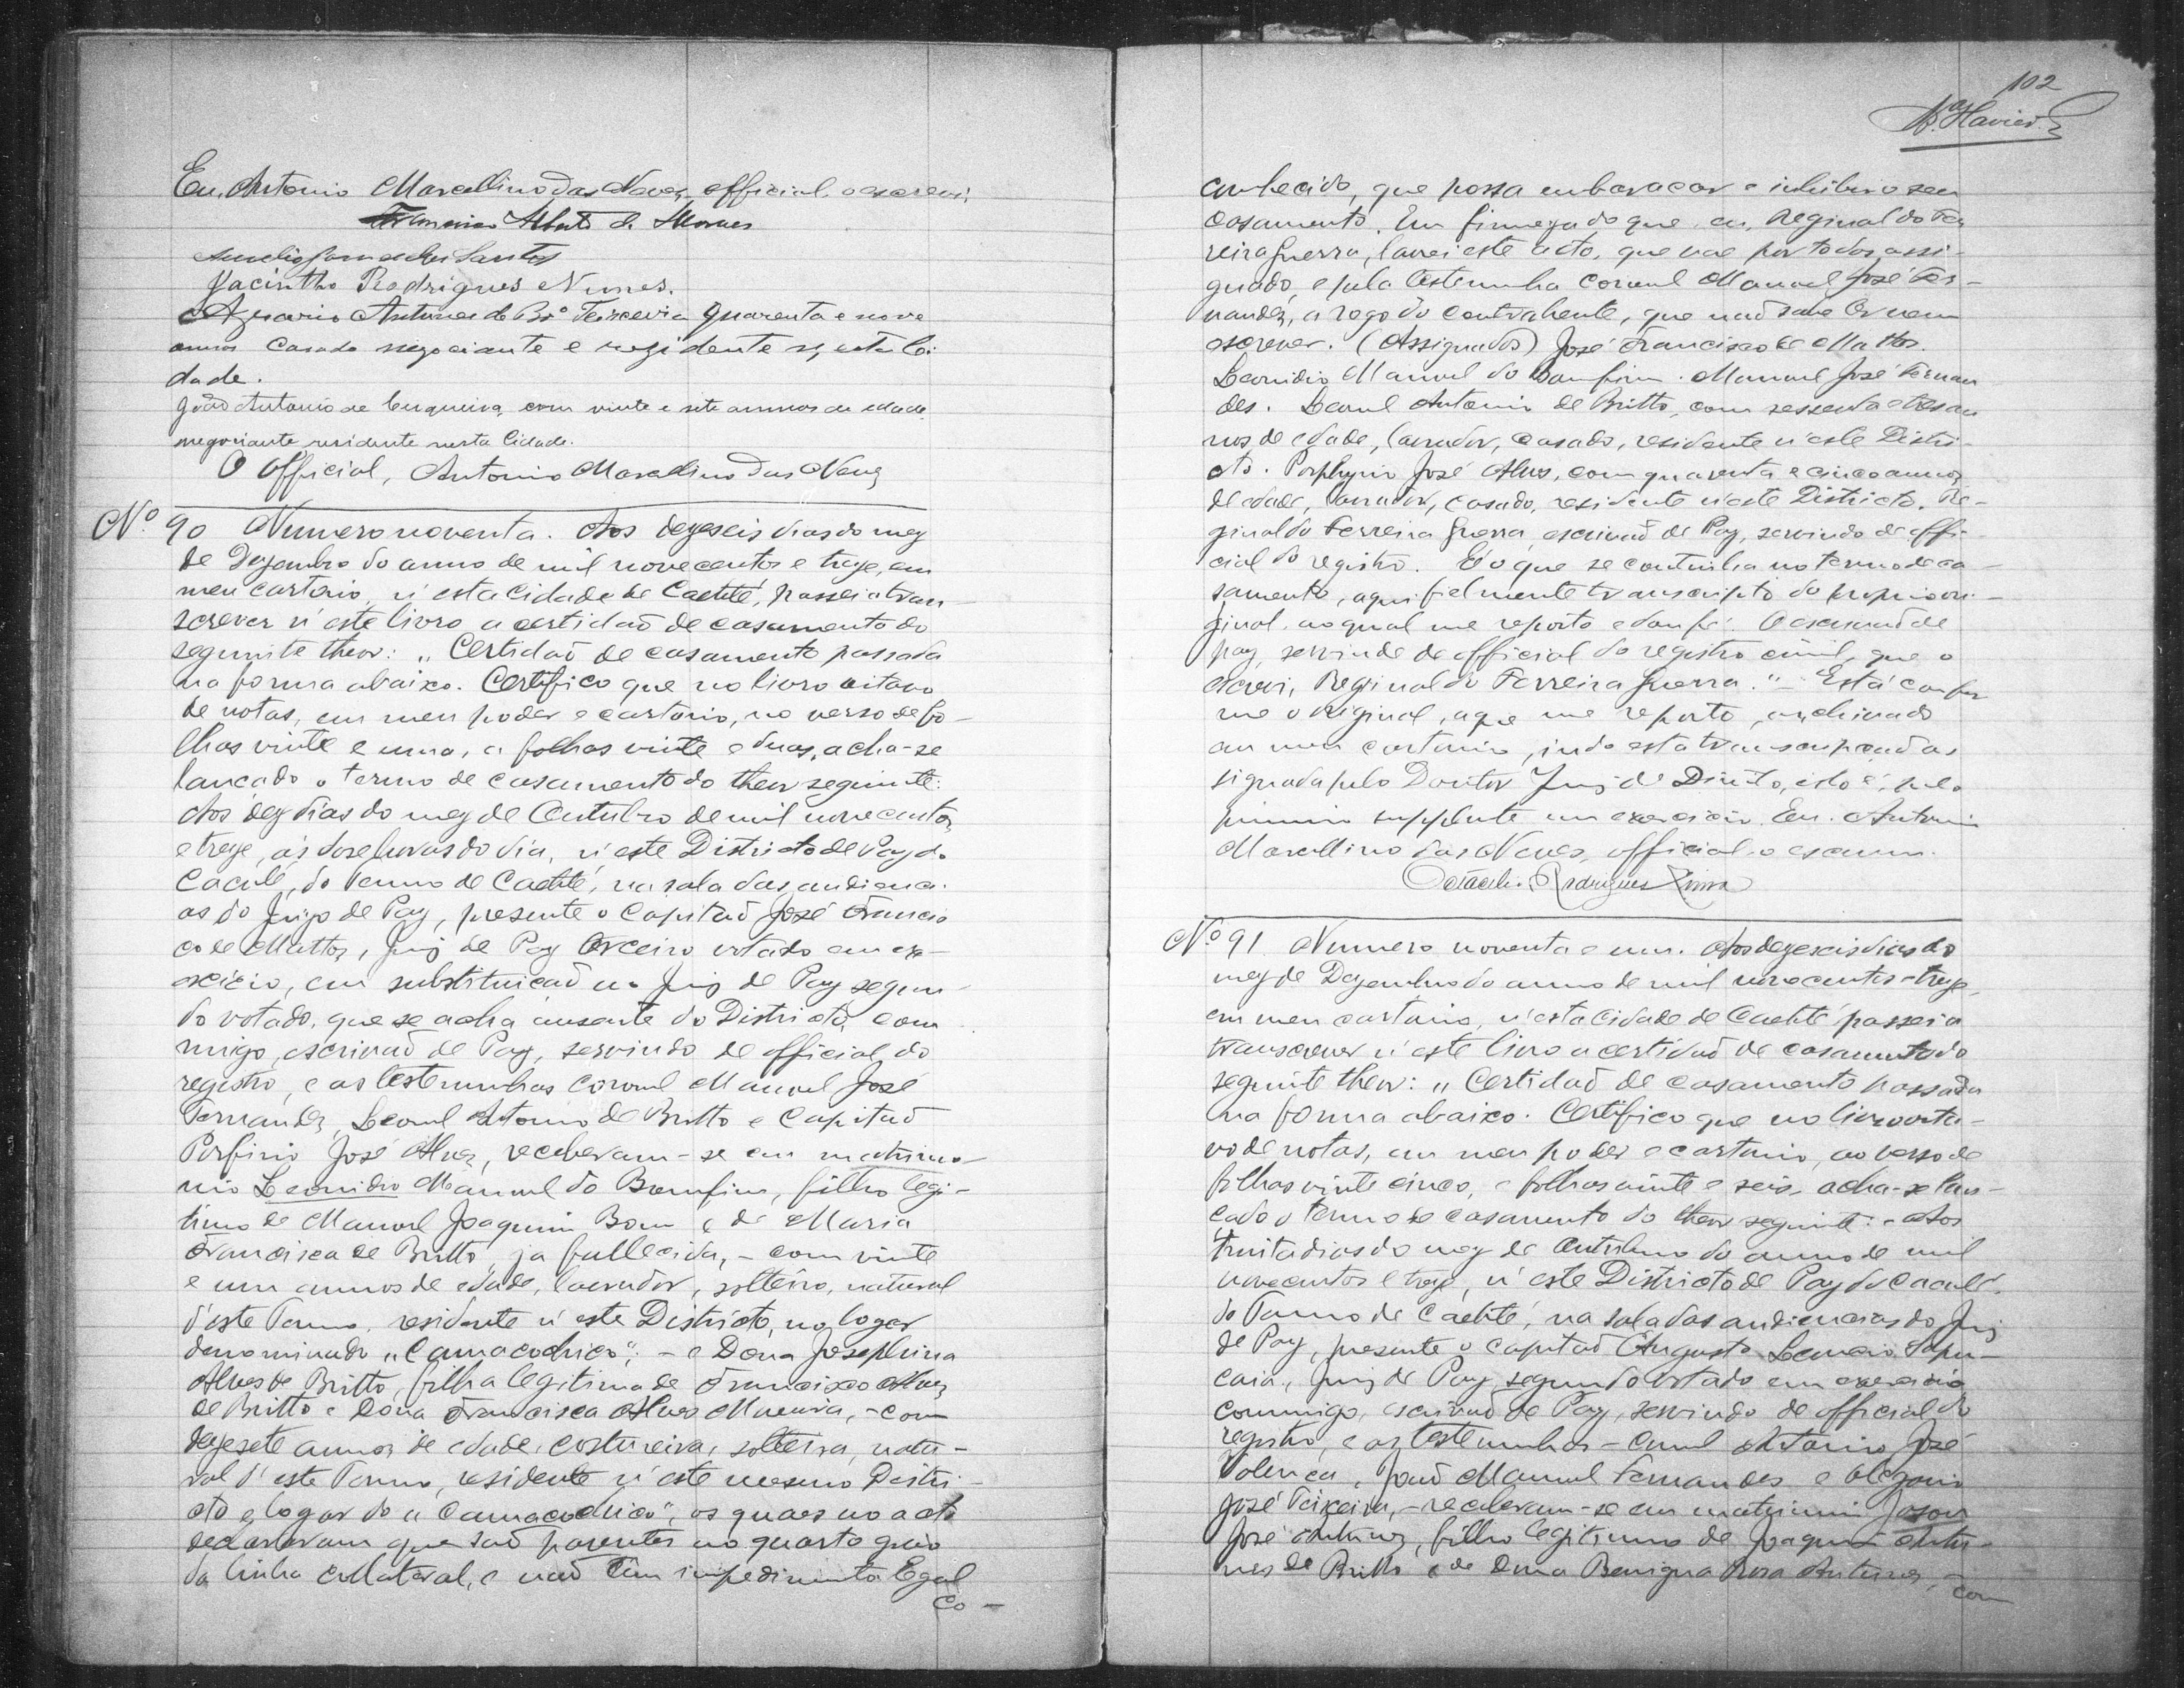 Eu, Antonio Marcellino das Neves, official o escrevi.
Francisco Alberto de Moraes
dos Santos
Jacintho Rodrigues Nunes.
Azarario Antunes de Brº Teixeira quarenta e nove
annos casado negociante e rezidente n'esta Ci-
dade.
João Antonio de Cerqueira, com vinte e sete annos de edade
negociante residente nesta Cidade.
O Official, Antonio Marcellino das Neves
Nº 90 Numero noventa. Aos dezeseis dias do mez
de Dezembro do anno de mil novecentos e treze, em
meu cartorio, n'esta Cidade de Caetité, passei a tran-
screver n'este livro a certidaõ de casamento do
seguinte theor: „ Certidaõ de casamento passada
na forma abaixo. Certifico que no livro oitavo
de notas, em meu poder e cartorio, no verso de fo-
lhas vinte e uma, a folhas vinte e duas, acha-se
lançado o termo de casamento do theor seguinte:
Aos dez dias do mez de Outubro de mil novecentos
e treze, ás doze horas do dia, n'este Districto de Paz do
Caculé, do Termo de Caetité, na sala das audienci-
as do Juizo de Paz, presente o Capitaõ José Francis
co de Mattos, Juiz de Paz terceiro votado em ex-
ercicio, em substituiçaõ ao Juiz de Paz segun-
do votado, que se acha ausente do Districto, com
migo, escrivaõ de Paz, servindo de official do
registro, e as testemunhas Coronel Manuel José
Fernandes, Leonel Antonio de Britto e Capitaõ
Porfirio José Alves, receberam-se em matrimo-
nio Leonidio Manuel do Bomfim, filho legi-
timo de Manoel Joaquim Bom e de Maria
Francisca de Britto, ja fallecida, - com vinte
e um annos de edade, lavrador, solteiro, natural
d'este Termo, residente n'este Districto, no logar
denominado „Camacochico"; - e Dona Josephina
Alves de Britto, filha legitima de Francisco Alves
de Britto e Dona Francisca Alves Moreira, - com
dezesete annos de edade, costureira, solteira, natu-
ral d'este Termo, residente n'este mesmo Distri-
cto e logar do „ Camacochico", os quaes no acto
declararam que saõ parentes no quarto gráo
da linha collateral, e naõ têm impedimento legal
co-
102
conhecido, que possa embaraçar e inhibir o seu
casamento. Em firmeza do que, eu, Reginaldo Fer
reira Guerra, lavrei este acto, que vae por todos assi-
gnado, e pela testemunha Coronel Manoel José Fer-
nandes, a rogo do contrahente, que naõ sabe ler nem
escrever. (Assignados) José Francisco de Mattos.
Leonidio Manuel do Bomfim. Manuel José Fernan
des. Leonel Antonio de Britto, com sessenta e tres an
nos de edade, lavrador, casado, residente n'este Distri-
cto. Porphyrio José Alves, com quarenta e cinco annos
de edade, lavrador, casado, residente n'este Districto. Re-
ginaldo Ferreira Guerra, escrivaõ de Paz, servindo de offi-
cial do registro. E' o que se continha no termo de ca-
samento, aqui fielmente transcripto do proprio ori-
ginal, ao qual me reporto e dou fé. O escrivaõ de
paz, servindo de official do registro civil, que o
escrevi, Reginaldo Ferreira Guerra." - Está confor
me o original, a que me reporto, archivado
em meu cartorio, indo esta transcripçaõ as
signada pelo Doutor Juiz de Direito, isto é, pelo
primeiro supplente em exercicio. Eu, Antonio
Marcellino das Neves, official o escrevi.
Octacilio Rodrigues Lima
Nº 91 Numero noventa e um. Aos dezeseis dias do
mez de Dezembro do anno de mil novecentos e treze,
em meu cartorio, n'esta Cidade de Caetité passei a
transcrever n'este livro a certidaõ de casamento do
seguinte theor: „ Certidaõ de casamento passada
na forma abaixo. Certifico que no livro oita-
vo de notas, em meu poder e cartorio, ao verso de
folhas vinte cinco, e folhas vinte e seis, acha-se lan-
çado o termo de casamento do theor seguinte: - Aos
trinta dias do mez de Outubro do anno de mil
novecentos e treze, n'este Districto de Paz do Caculé,
do Termo de Caetité, na sala das audiencias do Juiz
de Paz, presente o Capitaõ Augusto Leoncio Sapu-
caia, Juiz de Paz segundo votado em exercicio
commigo, escrivaõ de Paz, servindo de official do
registro, e as testemunhas - Antonio José
Valença, Joaõ Manuel Fernandes e
José Teixeira, - receberam-se em matrimonio
José Antunes, filho legitimo de Joaquim Antu-
nes de Britto e de Dona Benigna Rosa Antunes, -
com